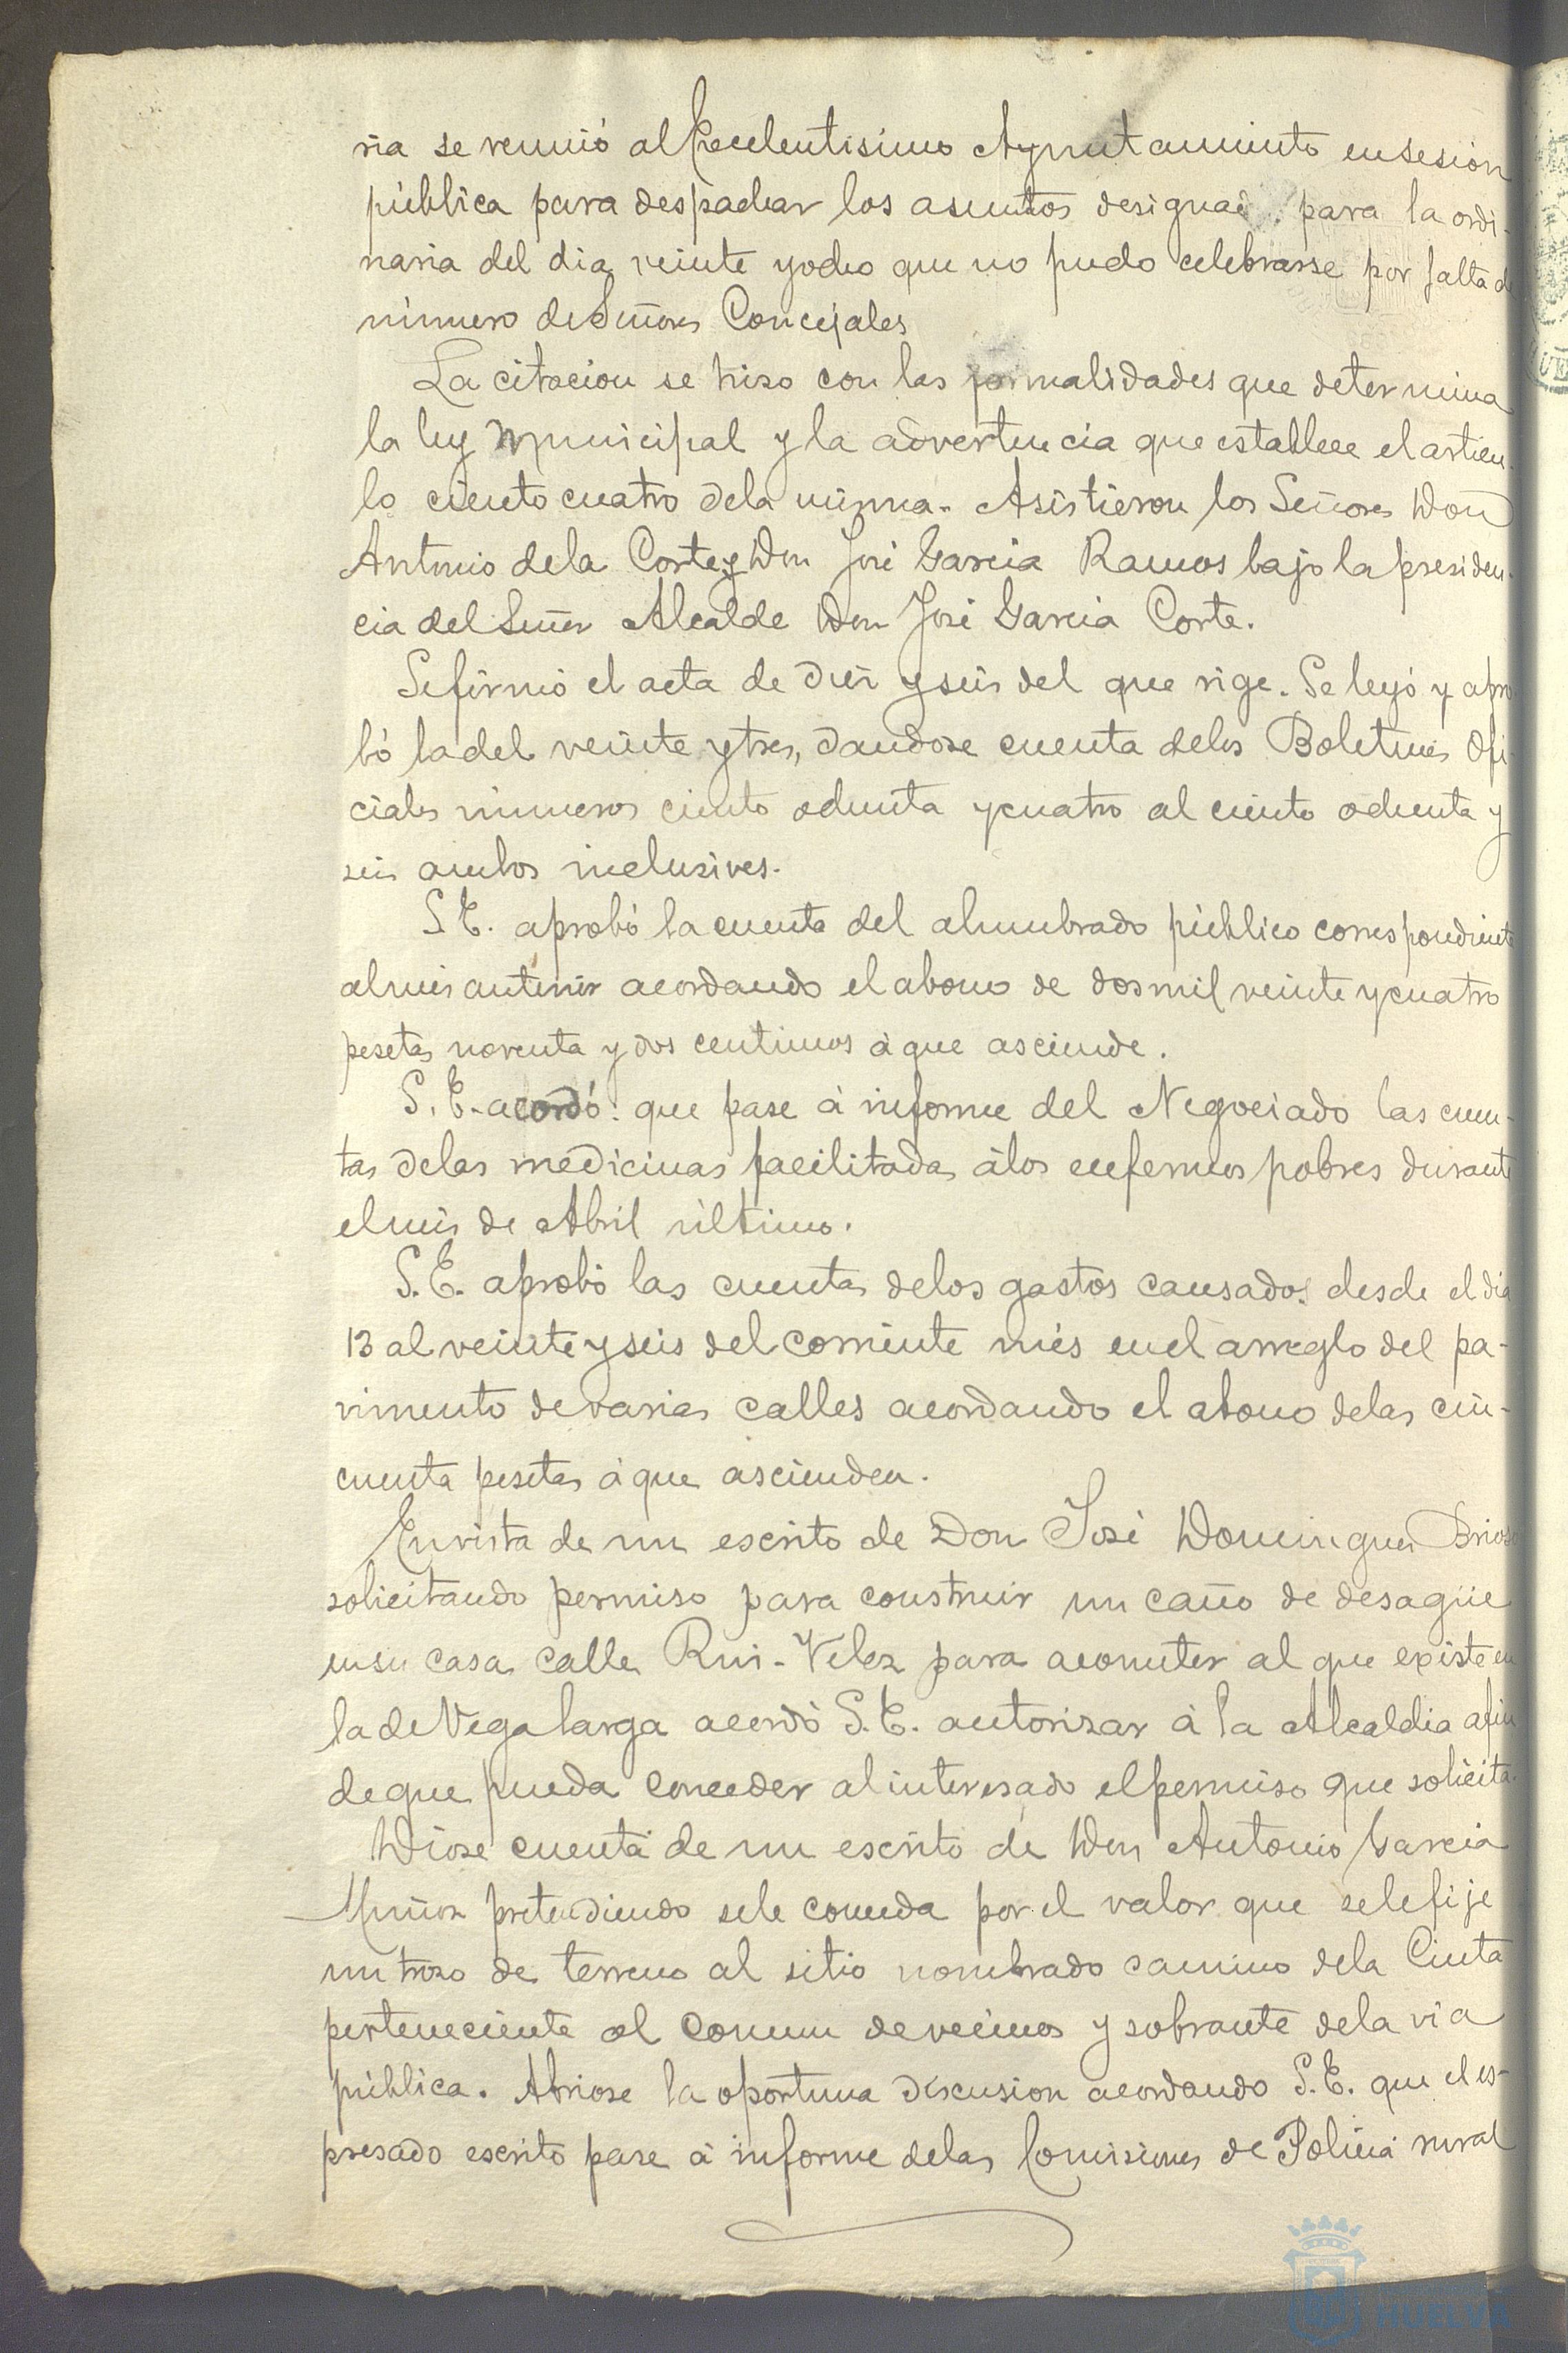 ria se reunió al Excelentisimo Ayuntamiento en sesion
pública para despachar los asuntos designad para la ordi-
naria del dia veinte y ocho que no pudo celebrarse por falta de
número de Señores Concejales
La citacion se hizo con las formalidades que determina
la ley municipal y la advertencia que establece el articu-
lo ciento cuatro de la misma. Asistieron los Señores Don
Antonio de la Corte y Don José Garcia Ramos bajo la presiden-
cia del Señor Alcalde Don José Garcia Corte.
Se firmó el acta de diez y seis del que rige. Se leyó y apro
bó la del veinte y tres, dandose cuenta de los Boletines Ofi-
ciales números ciento ochenta y cuatro al ciento ochenta y
seis ambos inclusives.
S. E. aprobó la cuenta del alumbrado público correspondiente
al mes anterior acordando el abono de dos mil veinte y cuatro
pesetas noventa y dos centimos á que asciende.
S. E. acordó: que pase á informe del Negociado las cuen-
tas de las medicinas facilitadas á los enfermos pobres durante
el mes de Abril último.
S. E. aprobó las cuentas de los gastos causados desde el dia
13 al veinte y seis del corriente més en el arreglo del pa-
vimento de varias calles acordando el abono de las cin-
cuenta pesetas á que ascienden.
En vista de un escrito de Don José Dominguez Brioso
solicitando permiso para construir un caño de desagüe
en su casa calle Rui-Velez para acometer al que existe en
la de Vega larga acordó S. E. autorizar á la Alcaldia afin
de que pueda conceder al interesado el permiso que solicita.
Diose cuenta de un escrito de Don Antonio Garcia
Muñoz pretendiendo se le conceda por el valor que se le fije
un trozo de terreno al sitio nombrado camino de la Cinta
perteneciente al comun de vecinos y sobrante de la via
pública. Abriose la oportuna discusion acordando S. E. que el es-
presado escrito pase á informe de las Comisiones de Policia rural
HUELVA